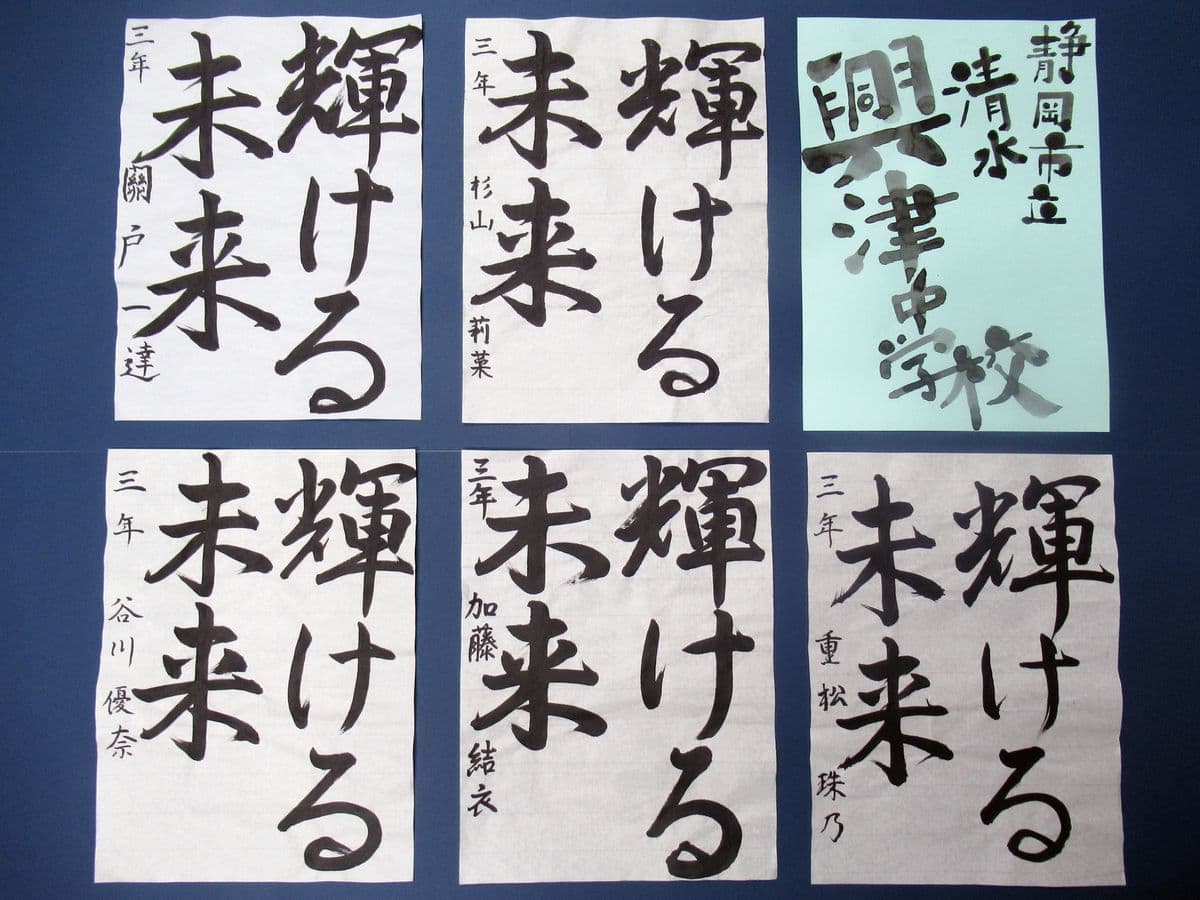 静岡市立
清水
興津中学校
輝ける
未来
三年 杉山 莉菓
輝ける
未来
三年 關戸 一達
輝ける
未来
三年 重松 珠乃
輝ける
未来
三年 加藤 結衣
輝ける
未来
三年 谷川 優奈